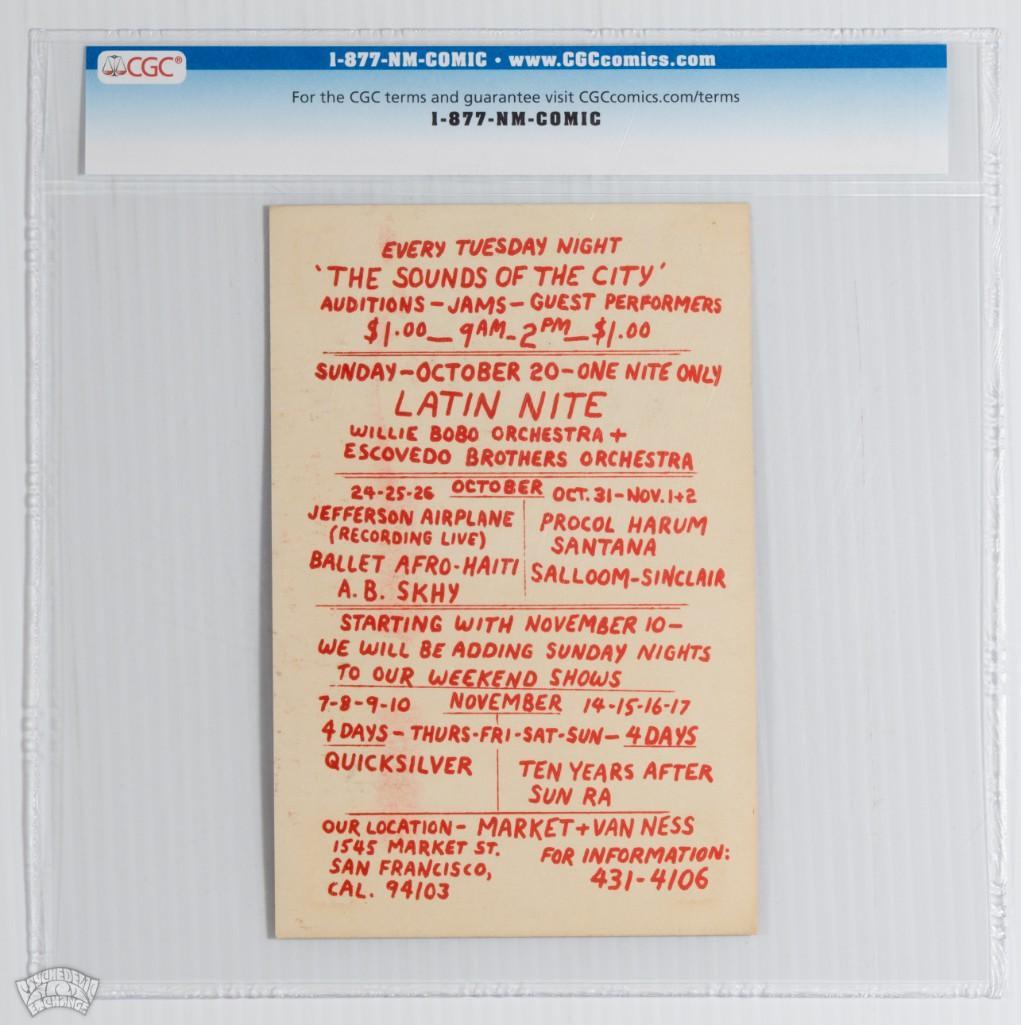 CGC®
1-877-NM-COMIC • www.CGCcomics.com
For the CGC terms and guarantee visit CGCcomics.com/terms
1-877-NM-COMIC
EVERY TUESDAY NIGHT
'THE SOUNDS OF THE CITY'
AUDITIONS - JAMS - GUEST PERFORMERS
$1.00 - 9AM - 2PM - $1.00
SUNDAY - OCTOBER 20 - ONE NITE ONLY
LATIN NITE
WILLIE BOBO ORCHESTRA +
ESCOVEDO BROTHERS ORCHESTRA
24-25-26 OCTOBER OCT. 31 - NOV. 1+2
JEFFERSON AIRPLANE
(RECORDING LIVE)
BALLET AFRO-HAITI
A.B. SKHY
PROCOL HARUM
SANTANA
SALLOOM-SINCLAIR
STARTING WITH NOVEMBER 10 -
WE WILL BE ADDING SUNDAY NIGHTS
TO OUR WEEKEND SHOWS
7-8-9-10 NOVEMBER 14-15-16-17
4 DAYS - THURS-FRI-SAT-SUN - 4 DAYS
QUICKSILVER
TEN YEARS AFTER
SUN RA
OUR LOCATION - MARKET + VAN NESS
1545 MARKET ST.
SAN FRANCISCO,
CAL. 94103
FOR INFORMATION:
431-4106
PSYCHEDELIC
EXCHANGE